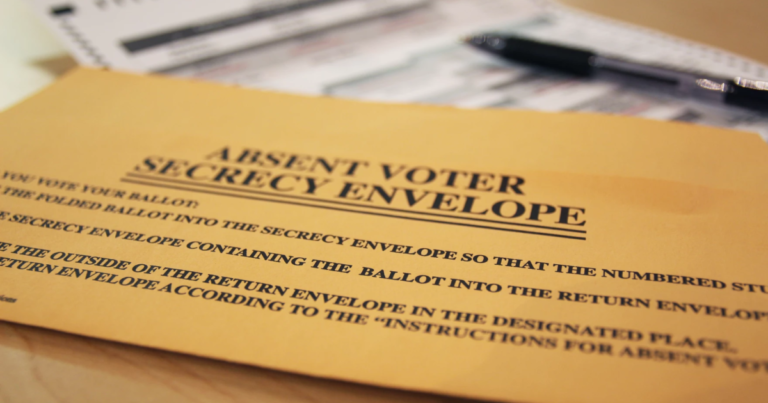 ABSENT VOTER
SECRECY ENVELOPE
YOU VOTE YOUR BALLOT:
THE FOLDED BALLOT INTO THE SECRECY ENVELOPE SO THAT THE NUMBERED STU
SECRECY ENVELOPE CONTAINING THE BALLOT INTO THE RETURN ENVELOP
THE OUTSIDE OF THE RETURN ENVELOPE IN THE DESIGNATED PLACE.
ETURN ENVELOPE ACCORDING TO THE "INSTRUCTIONS FOR ABSENT VOT